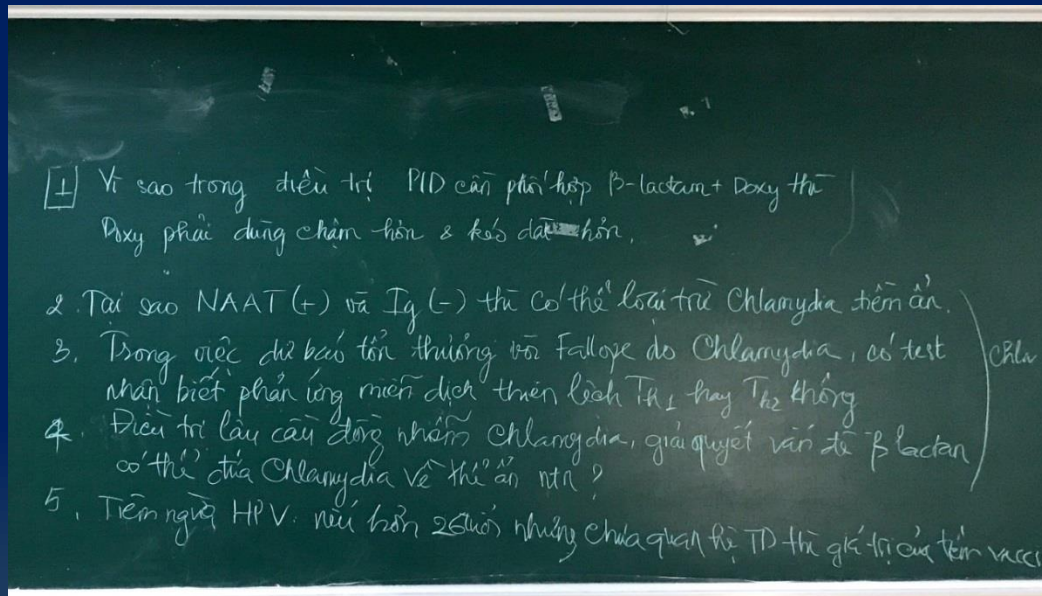 1 Vì sao trong điều trị PID cần phối hợp β-lactam + Doxy thì
Doxy phải dùng chậm hơn & kéo dài hơn.
2. Tại sao NAAT (+) và Ig (-) thì có thể loại trừ Chlamydia tiềm ẩn.
3. Trong việc dự báo tổn thương vòi Fallope do Chlamydia, có test
nhận biết phản ứng miễn dịch thiên lệch Th1 hay Th2 không
4. Điều trị lậu cầu đồng nhiễm Chlamydia, giải quyết vấn đề β lactan
có thể đưa Chlamydia về thể ẩn ntn?
Chla
5. Tiêm ngừa HPV: nếu hơn 26 tuổi nhưng chưa quan hệ TD thì giá trị của tiêm vacci